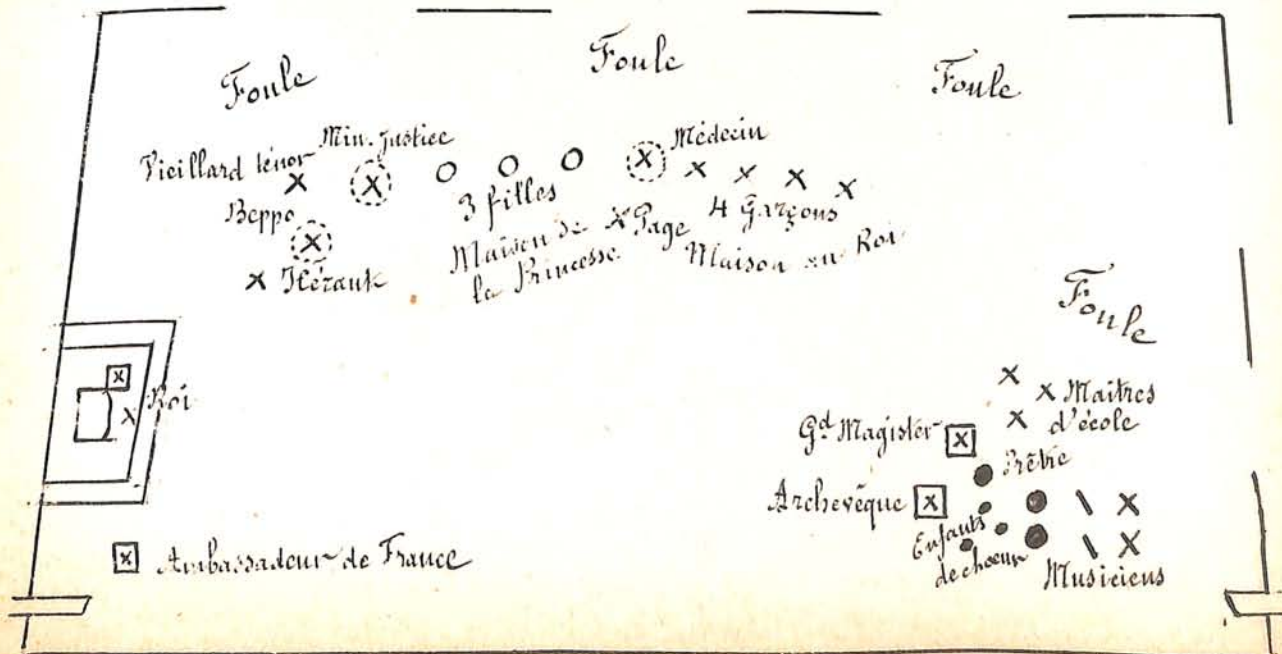 Foule
Foule
Foule
Vieillard ténor
Min. Justice
Médecin
Beppo
3 filles
4 Garçons
Héraut
Maison de
la Princesse
Page
Maison du Roi
Foule
Roi
Maîtres
d'école
Gd Magister
Prêtre
Archevêque
Enfants
de chœur
Musiciens
Ambassadeur de France